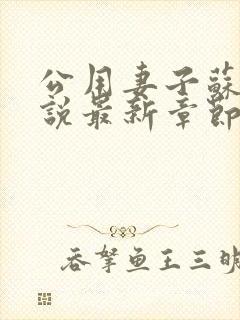 公用妻子蘇
説最新章節
吞拏鱼王三明